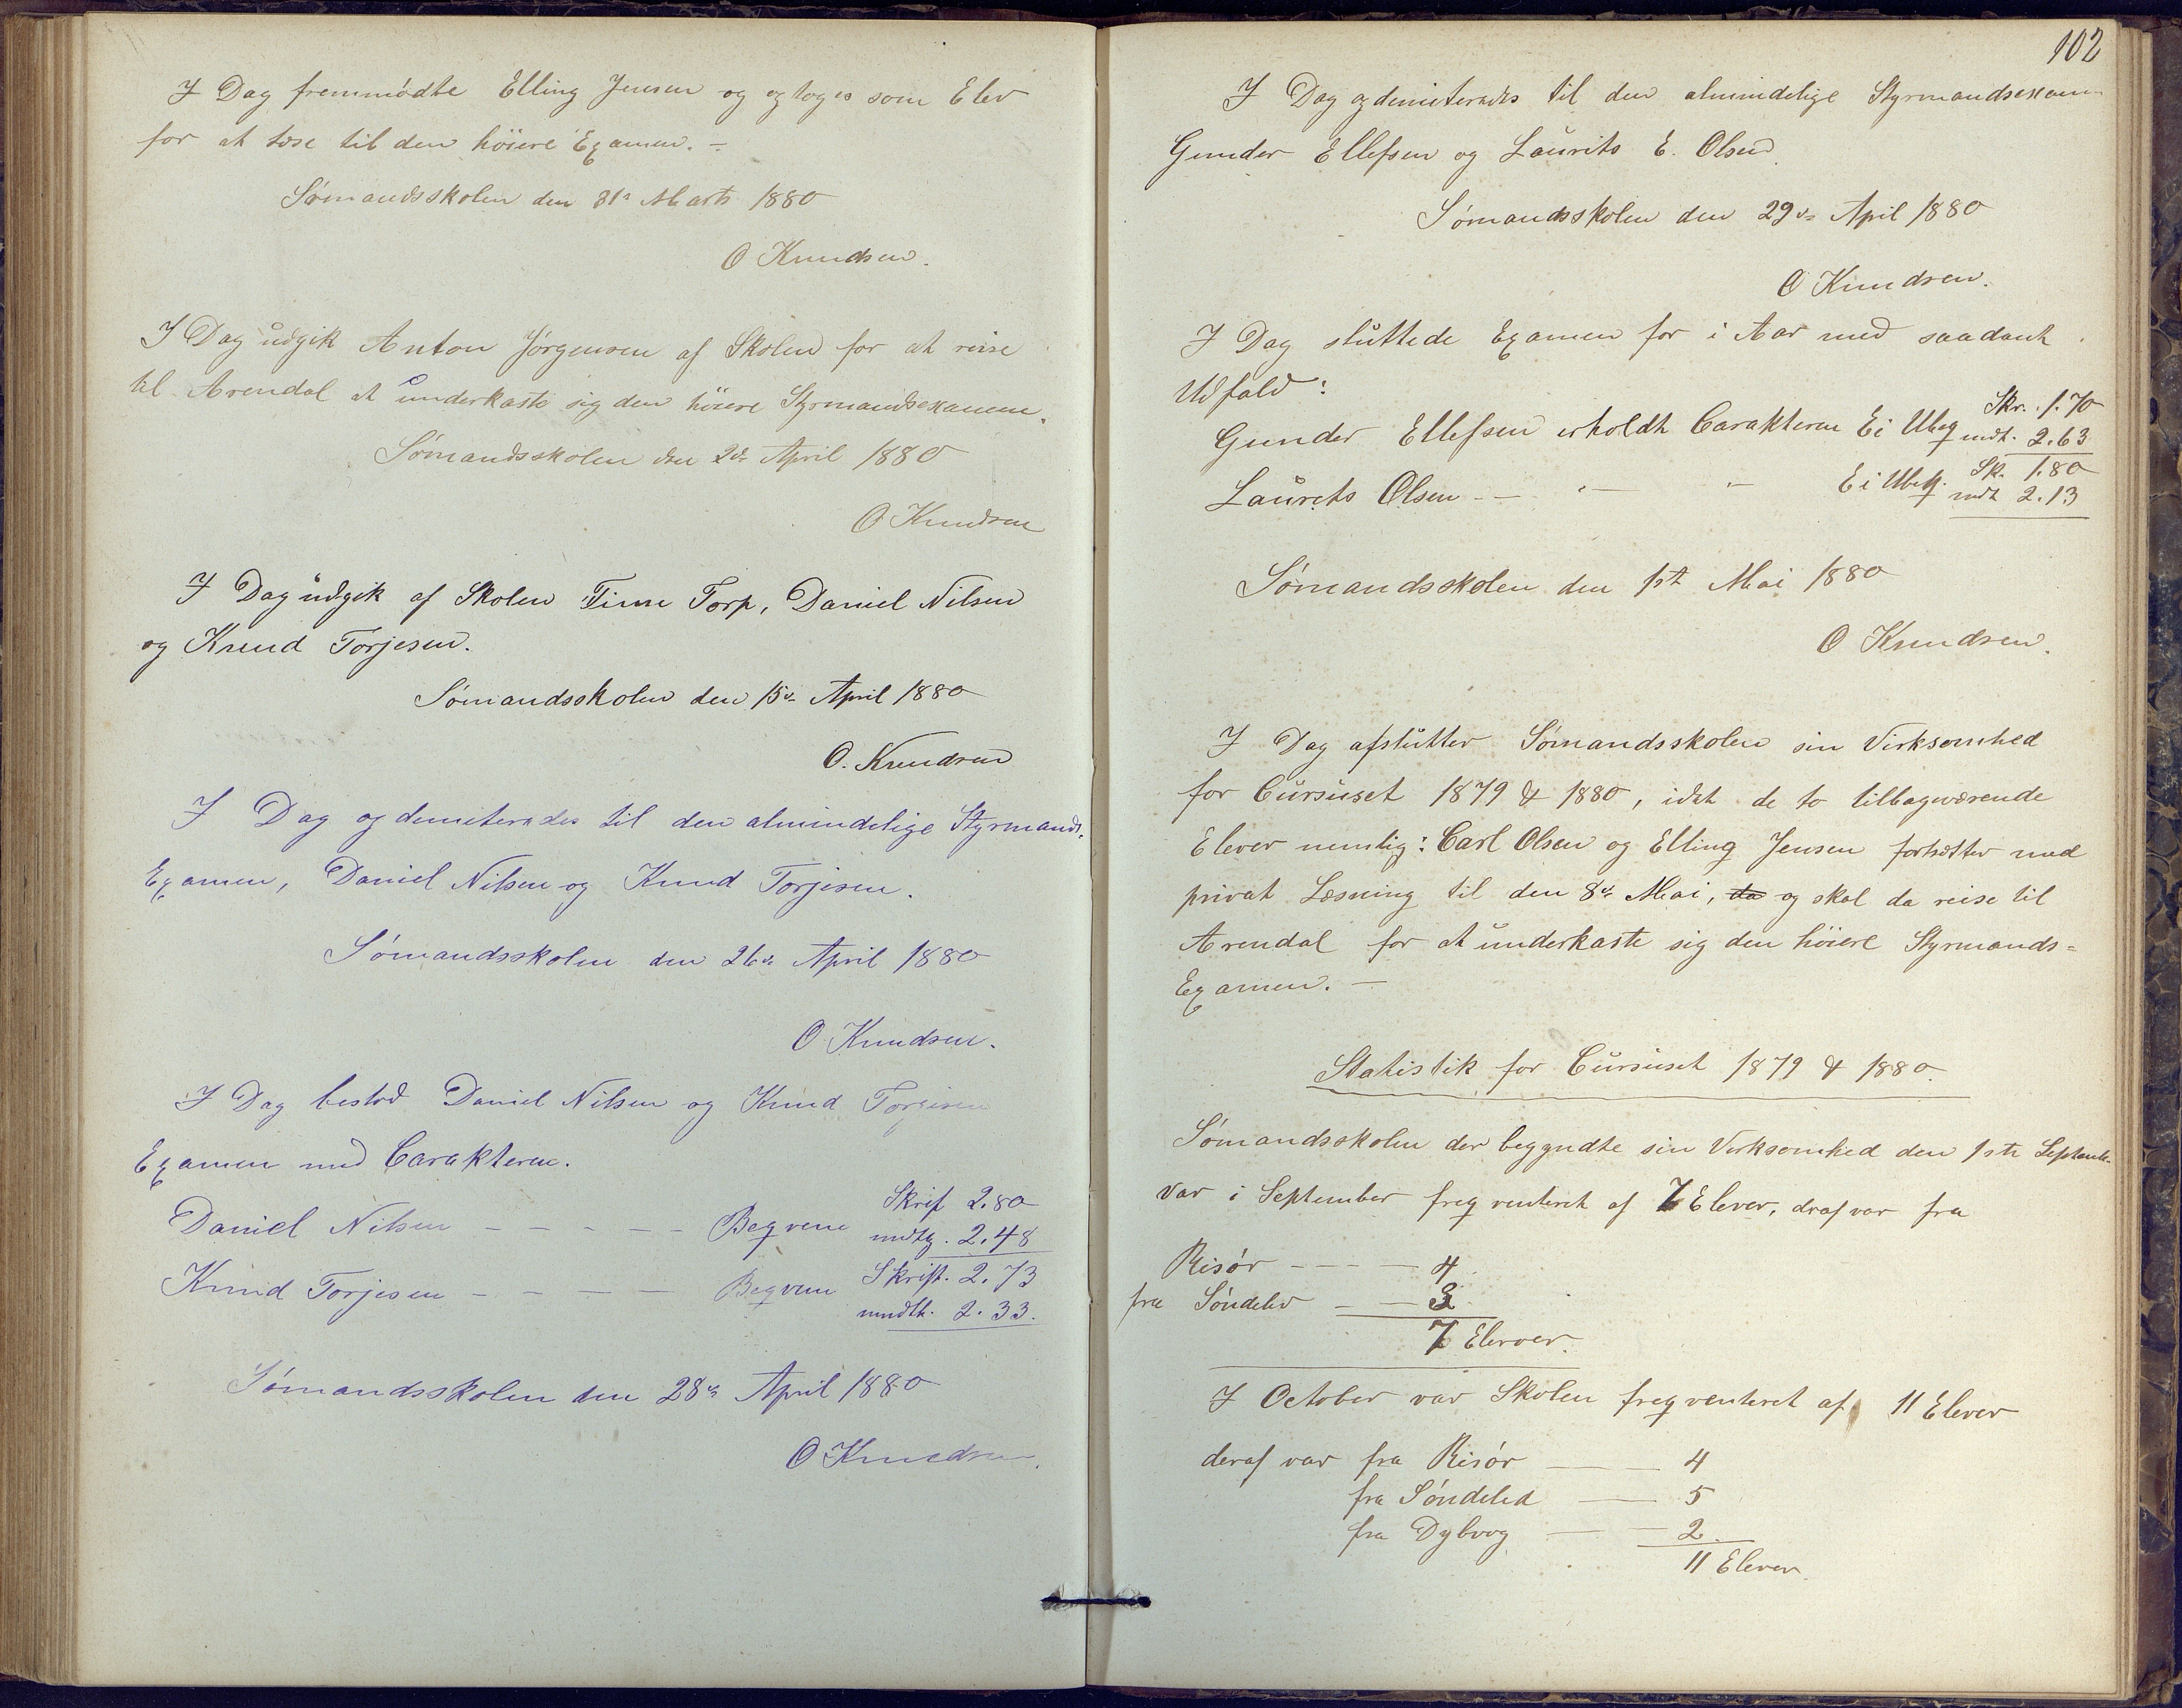 I Dag fremmödte Elling Jensen og optoges som Elev
for at læse til den höiere Examen. –
Sømandsskolen den 31te Marts 1880
O Knudsen.
I Dag udgik Anton Jörgensen af Skolen for at reise
til Arendal at underkaste sig den höiere Styrmandsexamen.
Sømandsskolen den 2de April 1880
O Knudsen
I Dag udgik af Skolen Time Torp, Daniel Nilsen
og Knud Torjesen.
Sømandsskolen den 15de April 1880
O. Knudsen
I Dag opdemiterades til den almindelige Styrmands-
Examen, Daniel Nilsen og Knud Torjesen.
Sømandsskolen den 26de April 1880
O Knudsen.
I Dag bestod Daniel Nilsen og Knud Torjesen
Examen med Carakteren.
Daniel Nilsen – – – – – Beqvem Skrift 2.80
mdtg. 2.48
Knud Torjesen – – – – – Beqvem Skrift. 2.73
mndtl. 2.33.
Sømandsskolen den 28de April 1880
O Knudsen.
102
I Dag opdemiterades til den almindelige Styrmandsexamen
Gunder Ellefsen og Laurits E. Olsen.
Sømandsskolen den 29de April 1880
O Knudsen.
I Dag sluttede Examen for i Aar med saadant
Udfald:
Gunder Ellefsen erholdt Carakteren Ei Ubeq Skr. 1.70
mdt. 2.63
Laurits Olsen – – " " Ei Ubeq. Sk. 1.80
mdt 2.13
Sømandsskolen den 1ste Mai 1880
O Knudsen.
I Dag afslutter Sømandsskolen sin Virksomhed
for Cursuset 1879 & 1880, idet de to tilbageværende
Elever nemlig: Carl Olsen og Elling Jensen fortsætter med
privat Læsning til den 8de Mai, da og skal da reise til
Arendal for at underkaste sig den höiere Styrmands=
Examen. –
Statistik for Cursuset 1879 & 1880.
Sømandsskolen der begyndte sin Virksomhed den 1ste Septemb.
var i September freqventeret af 7 Elever, deraf var fra
Risør – – – – 4
fra Söndeled – – 3
7 Elever.
I October var Skolen freqventeret af 11 Elever
deraf var fra Risør – – 4
fra Söndeled – – 5
fra Dybvog – – 2
11 Elever.